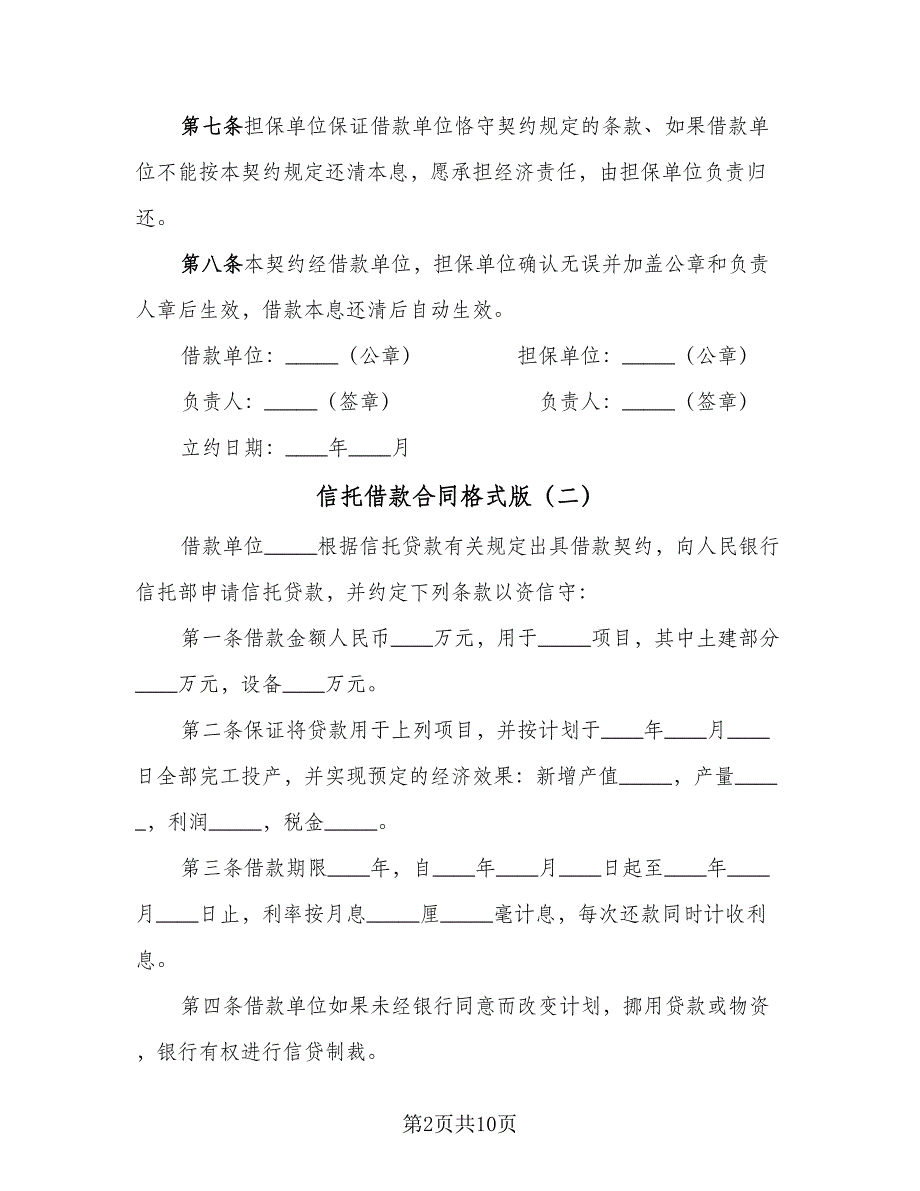 第七条担保单位保证借款单位恪守契约规定的条款、如果借款单
位不能按本契约规定还清本息，愿承担经济责任，由担保单位负责归
还。
第八条本契约经借款单位，担保单位确认无误并加盖公章和负责
人章后生效，借款本息还清后自动生效。
借款单位：_____（公章） 担保单位：_____（公章）
负责人：_____（签章） 负责人：_____（签章）
立约日期：____年____月
信托借款合同格式版（二）
借款单位_____根据信托贷款有关规定出具借款契约，向人民银行
信托部申请信托贷款，并约定下列条款以资信守：
第一条借款金额人民币____万元，用于_____项目，其中土建部分
____万元，设备____万元。
第二条保证将贷款用于上列项目，并按计划于____年____月____
日全部完工投产，并实现预定的经济效果：新增产值_____，产量____
_，利润_____，税金_____。
第三条借款期限____年，自____年____月____日起至____年____
月____日止，利率按月息_____厘_____毫计息，每次还款同时计收利
息。
第四条借款单位如果未经银行同意而改变计划，挪用贷款或物资
，银行有权进行信贷制裁。
第2页共10页